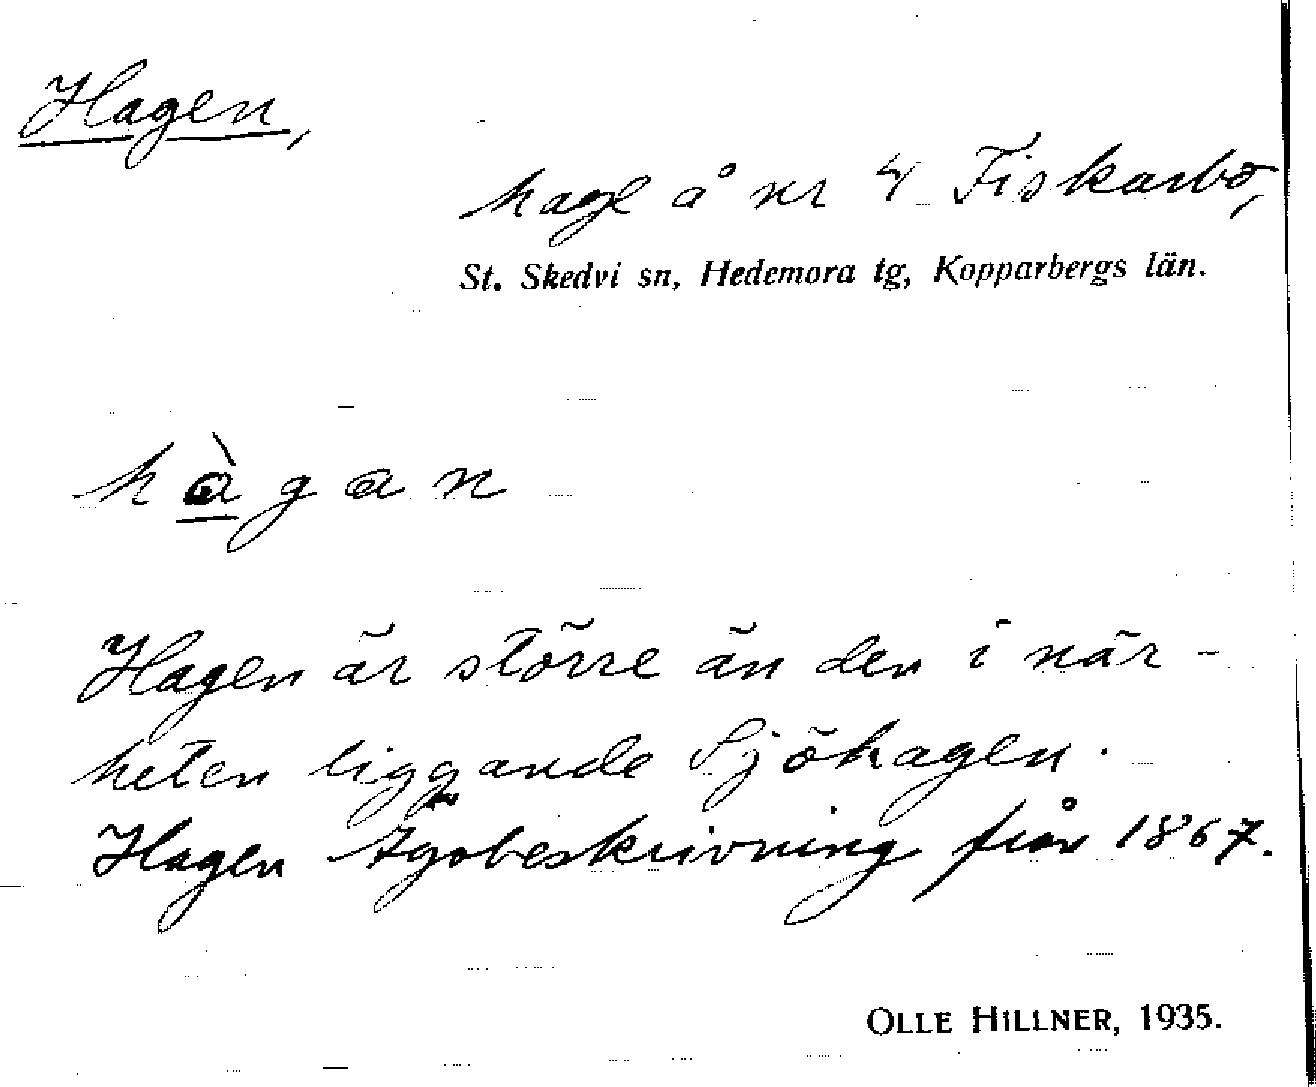 Hagen,
hage å nr 4 Fiskarbo,
St. Skedvi sn, Hedemora tg, Kopparbergs län.
hàgan
Hagen är större än den i när-
heten liggande Sjöhagen.
Hagen Ägobeskrivning från 1867.
OLLE HILLNER, 1935.